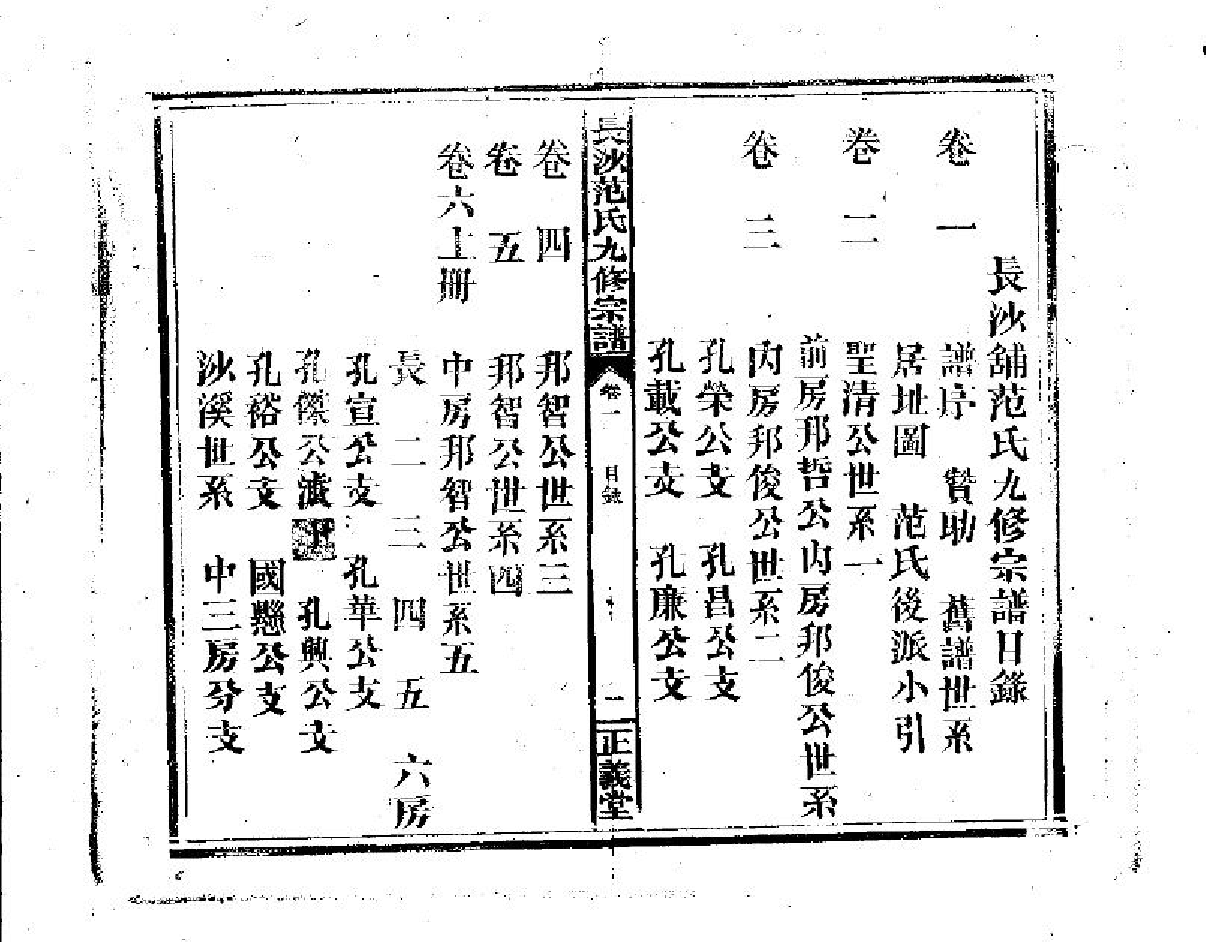 長沙舖范氏九修宗譜目錄
卷一 譜序 贊助 舊譜世系
居址圖 范氏後派小引
卷二 聖清公世系一
前房邦哲公內房邦俊公世系
卷三 內房邦俊公世系二
孔榮公支 孔昌公支
孔載公支 孔廉公支
長沙范氏九修宗譜 卷一 目錄 一 正義堂
卷四 邦智公世系三
卷五 邦智公世系四
卷六上冊 中房邦智公世系五
長二三四五六房
孔宣公支 孔華公支
孔傑公 孔興公支
孔裕公支 國懸公支
沙溪世系 中三房分支